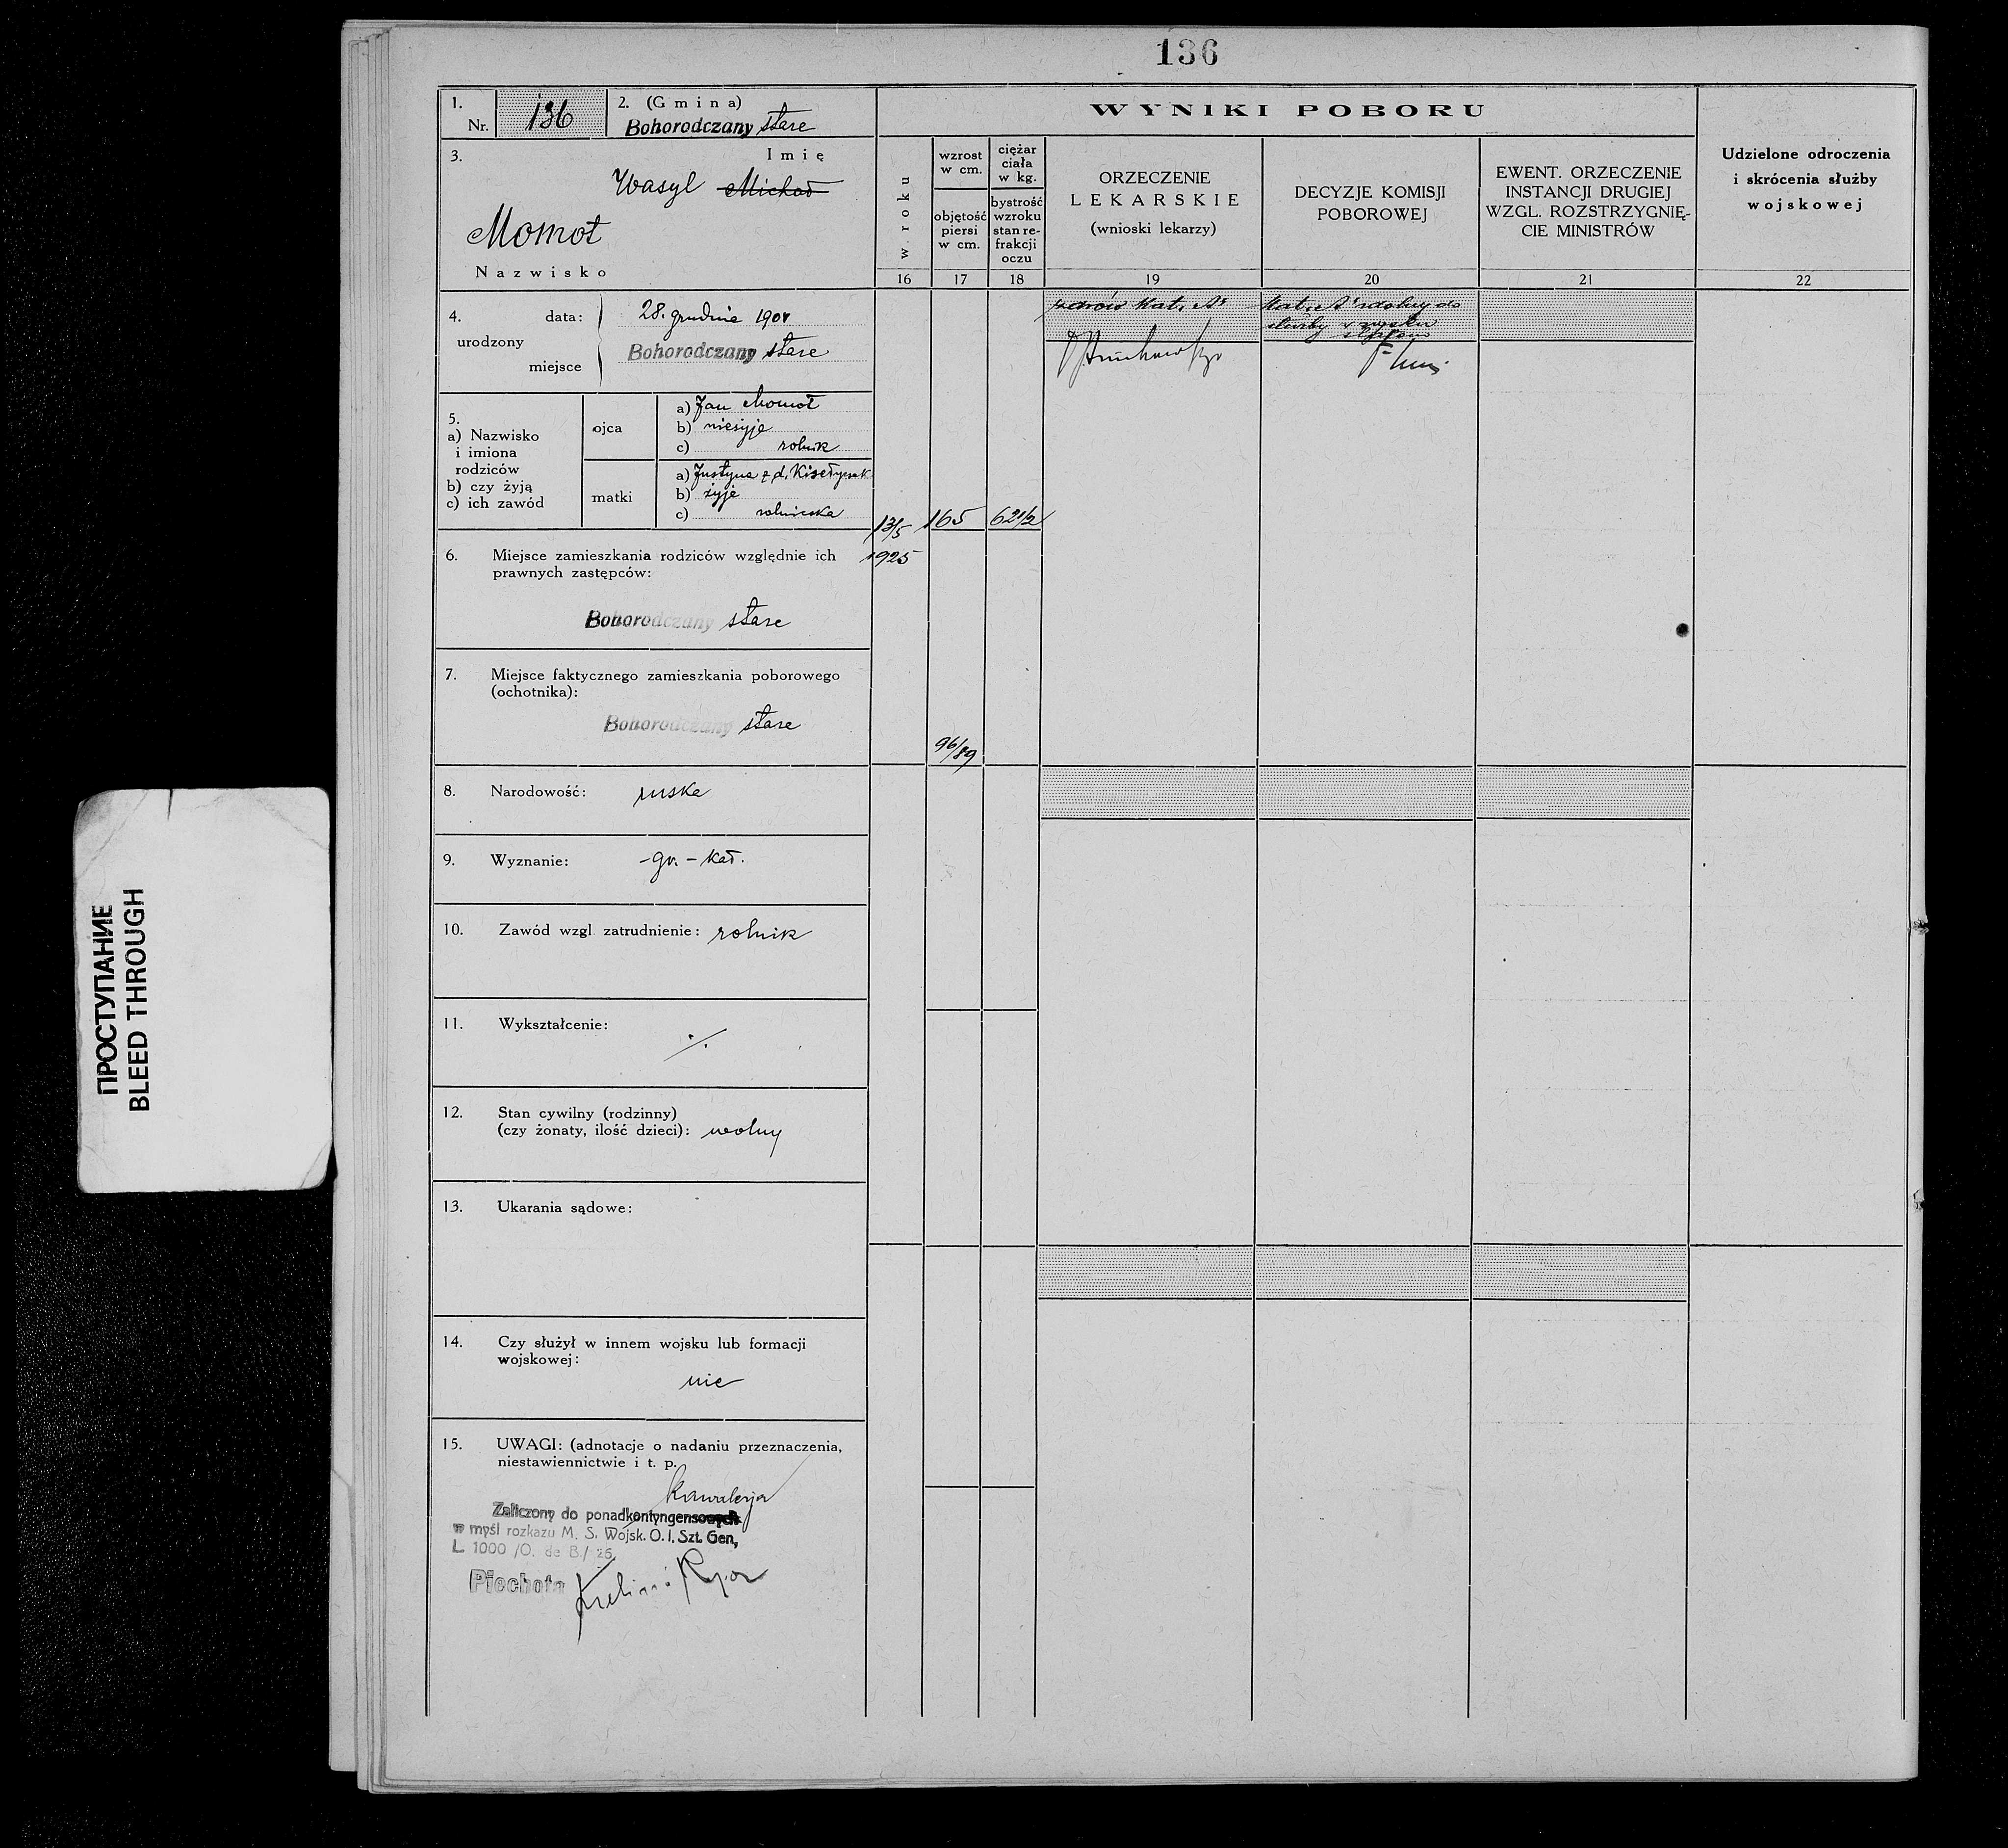 136
1.
Nr. 136
2. (Gmina)
Bohorodczany stare
3.
Imię
Wasyl Michał
Momot
Nazwisko
4. urodzony
data: 28. grudnia 1904
miejsce Bohorodczany stare
5.
a) Nazwisko
i imiona
rodziców
b) czy żyją
c) ich zawód
ojca
a) Jan Momot
b) nieżyje
c) rolnik
matki
a) Justyna z d.
b) żyje
c) rolniczka
6. Miejsce zamieszkania rodziców względnie ich
prawnych zastępców:
Bohorodczany stare
7. Miejsce faktycznego zamieszkania poborowego
(ochotnika):
Bohorodczany stare
8. Narodowość: ruska
9. Wyznanie: -gr.-kat.
10. Zawód wzgl. zatrudnienie: rolnik
11. Wykształcenie:
·/.
12. Stan cywilny (rodzinny)
(czy żonaty, ilość dzieci): wolny
13. Ukarania sądowe:
14. Czy służył w innem wojsku lub formacji
wojskowej:
nie
15. UWAGI: (adnotacje o nadaniu przeznaczenia,
niestawiennictwie i t. p.
Kawalerja
Zaliczony do ponadkontyngensowych
w myśl rozkazu M. S. Wojsk. O. I. Szt. Gen,
L. 1000 /O. de B./ 25
Piechota
WYNIKI POBORU
w roku
wzrost
w cm.
objętość
piersi
w cm.
ciężar
ciała
w kg.
bystrość
wzroku
stan re-
frakcji
oczu
ORZECZENIE
LEKARSKIE
(wnioski lekarzy)
DECYZJE KOMISJI
POBOROWEJ
EWENT. ORZECZENIE
INSTANCJI DRUGIEJ
WZGL. ROZSTRZYGNIĘ-
CIE MINISTRÓW
Udzielone odroczenia
i skrócenia służby
wojskowej
16 17 18 19 20 21 22
zdrów Kat. A
Kat. A zdolny do
służby w wojsku
13/5 165 62 1/2
1925
96/89
ПРОСТУПАНИЕ
BLEED THROUGH